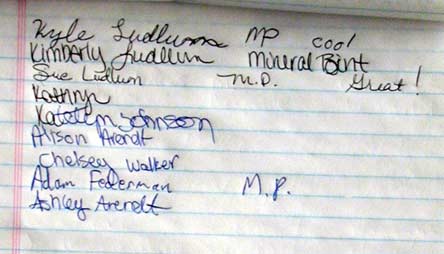 Kyle Ludlum MP cool
Kimberly Ludlum Mineral Point
Sue Ludlum M.D. Great!
Kathryn
Katelyn Johnson
Alison Arendt
Chelsey Walker
Adam Federman M.P.
Ashley Arendt